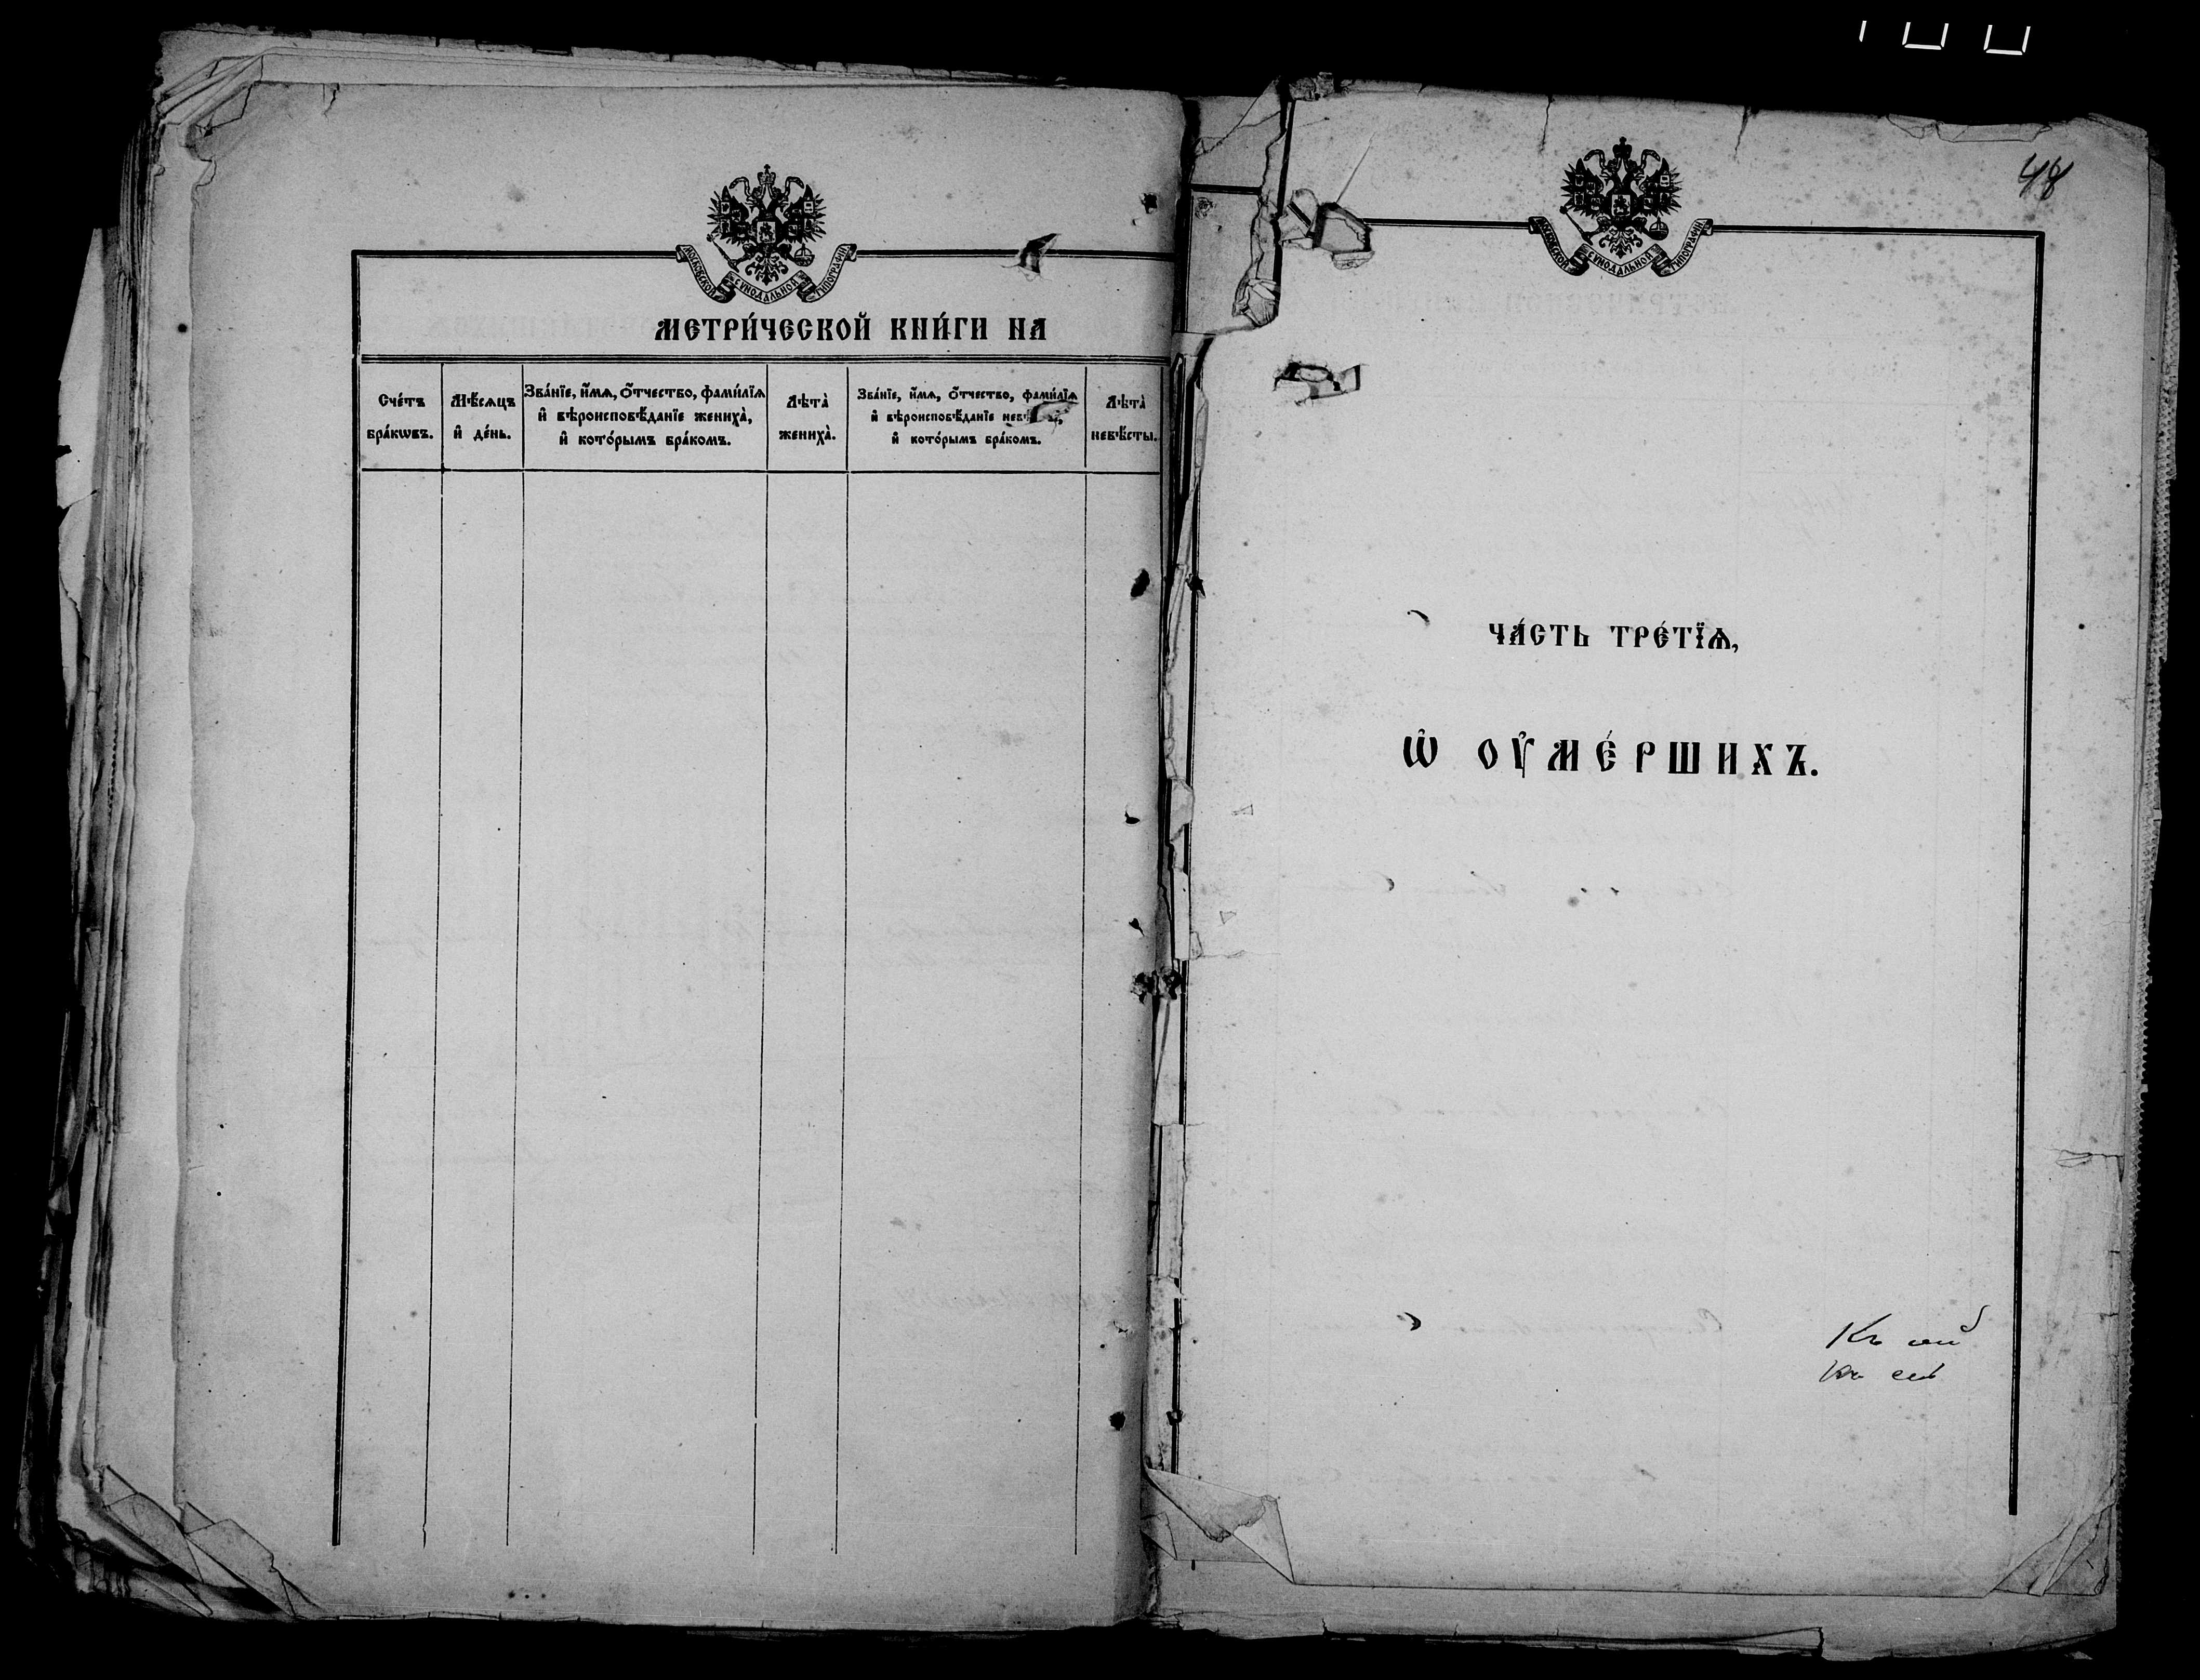 МОСКОВСКОЙ СѴНОДАЛЬНОЙ ТИПОГРАФІИ
МЕТРИ́ЧЕСКОЙ КНИ́ГИ НА
Сче́тъ
бра́кѡвъ.
Мѣ́сѧцъ
и҆ де́нь.
Зва́нїе, и҆́мѧ, ѻ҆́тчество, фами́лїѧ
и҆ вѣроисповѣ́данїе жениха̀,
и҆ кото́рымъ бра́комъ.
Лѣта̀
жениха̀.
Зва́нїе, и҆́мѧ, ѻ҆́тчество, фами́лїѧ
и҆ вѣроисповѣ́данїе
и҆ кото́рымъ бра́комъ.
Лѣта̀
невѣ́сты.
48
МОСКОВСКОЙ СѴНОДАЛЬНОЙ ТИПОГРАФІИ
ЧА́СТЬ ТРЕ́ТЇѦ,
Ѡ҆ ОУ҆МЕ́РШИХЪ.